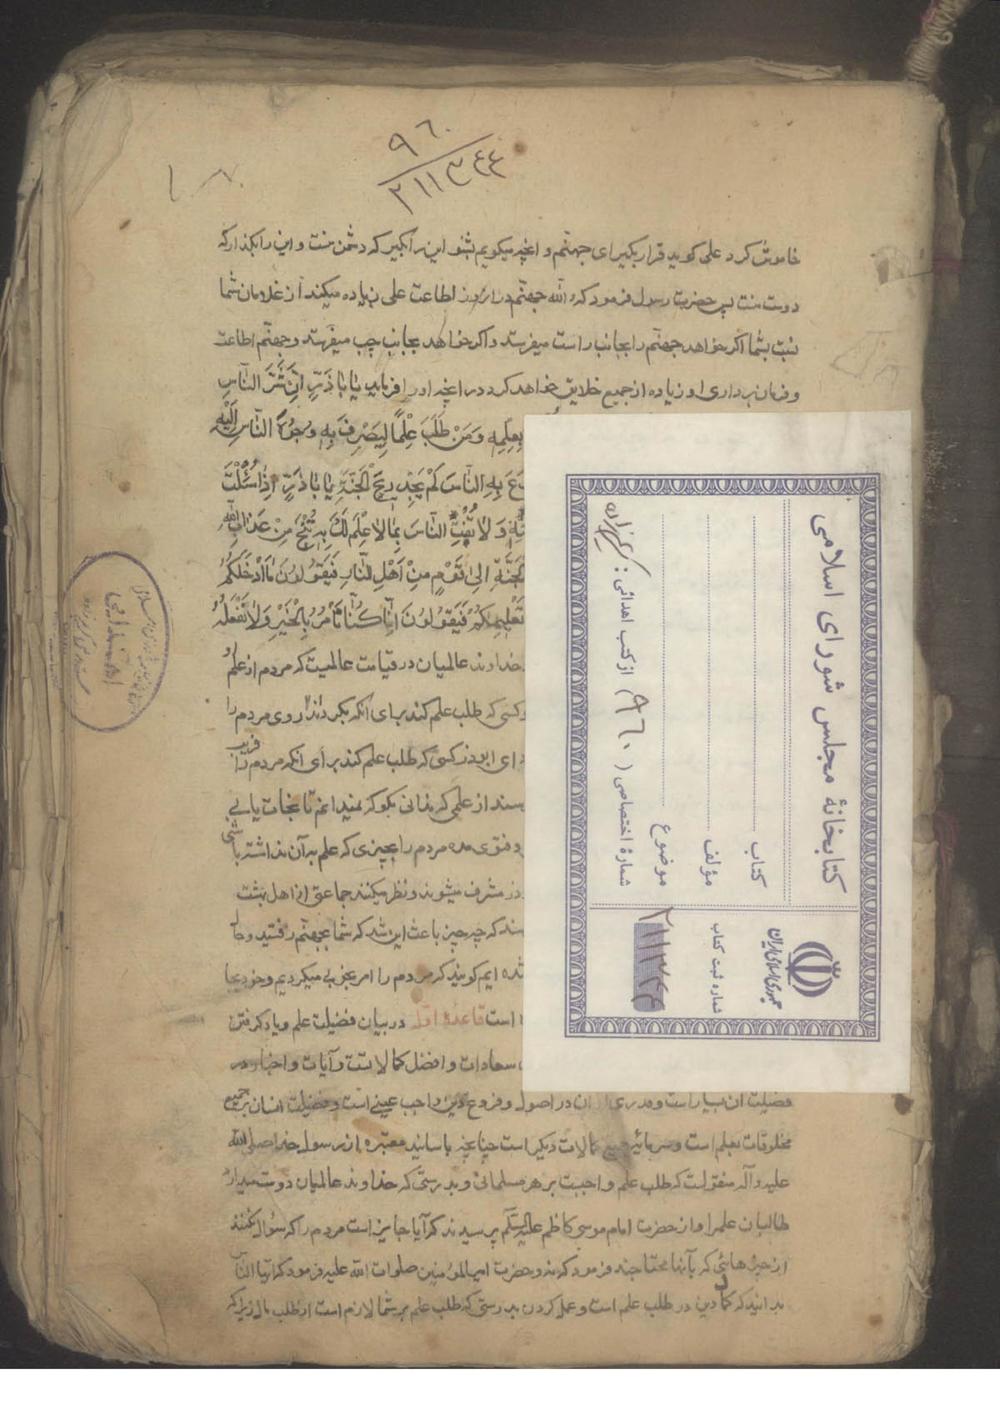 ٩٦٠
٢١١٣٤٤
خاموش کرد علی کوید قرار بکیر ای جهنم و آنچه میکویم بشنو این را بکیر که دشمن منست و این را بکذار که
دوست منست پس حضرت رسول فرمود که والله جهنم در آن روز اطاعت علی زیاده میکند از غلامان شما
نسبت بشما اکر خواهد جهنم را بجانب راست میفرستد و اکر خواهد بجانب چپ میفرستد و جهنم اطاعت
و فرمان برداری او زیاده از جمیع خلایق خواهد کرد در آنچه او را فرماید یَا بَاذَرّ اِنَّ شَرَّ النَّاسِ
بِعِلْمِهِ وَمَنْ طَلَبَ عِلْمًا لِیَصْرِفَ بِهِ وُجُوهَ النَّاسِ اِلَیْهِ
بِهِ النَّاسَ لَمْ یَجِدْ رِیحَ الْجَنَّةِ یَا بَاذَرّ اِذَا سُئِلْتَ
وَلَا تُفْتِ النَّاسَ بِمَا لَا عِلْمَ لَکَ بِهِ تَنْجُ مِنْ عَذَابِ اللّٰهِ
الْجَنَّةِ اِلَی قَوْمٍ مِنْ اَهْلِ النَّارِ فَیَقُولُونَ مَا اَدْخَلَکُمُ
تَعْلِیمِکُمْ فَیَقُولُونَ اِنَّا کُنَّا نَأْمُرُ بِالْخَیْرِ وَلَا نَفْعَلُهُ
خداوند عالمیان در قیامت عالمیست که مردم از علم او
و کسی که طلب علم کند برای آنکه بکرداند روی مردم را
ای ابوذر کسی که طلب علم کند برای آنکه مردم را فریب
از علمی که ندانی بکو که نمیدانم تا نجات یابی
و فتوی مده مردم را بچیزی که علم بر آن نداشته باشی
مشرف میشوند و نظر میکنند جماعتی از اهل بهشت
که چه چیز باعث این شد که شما بجهنم رفتید و حال
شده ایم کویند که مردم را امر بخیر میکردیم و خود بجا
است قاعدهٔ اول در بیان فضیلت علم و یاد کرفتن
سعادات و افضل کمالاتست و آیات و اخبار در
فضیلت آن بسیار است و قدری از آن در اصول و فروع دین واجب عینی است و فضیلت انسان بر جمیع
مخلوقات بعلم است و سرمایهٔ جمیع کمالات دیکر است چنانچه باسانید معتبره از رسول خدا صلی الله
علیه و آله منقولست که طلب علم واجبست بر هر مسلمانی و بدرستی که خداوند عالمیان دوست میدارد
طالبان علم را و از حضرت امام موسی کاظم علیه السلام پرسیدند که آیا جایز است مردم را که سؤال نکنند
از چیزهائی که بآنها محتاجند فرمود که نه و حضرت امیرالمؤمنین صلوات الله علیه فرمود که ایها الناس
بدانید که کمال دین در طلب علم است و عمل کردن بدرستی که طلب علم بر شما لازم است از طلب مال زیرا که
کتابخانهٔ مجلس شورای اسلامی
کتاب
مؤلف
موضوع
شمارهٔ اختصاصی ( ٩٦٠ ) از کتب اهدائی :
جمهوری اسلامی ایران
شماره ثبت کتاب
٢١١٣٤٤